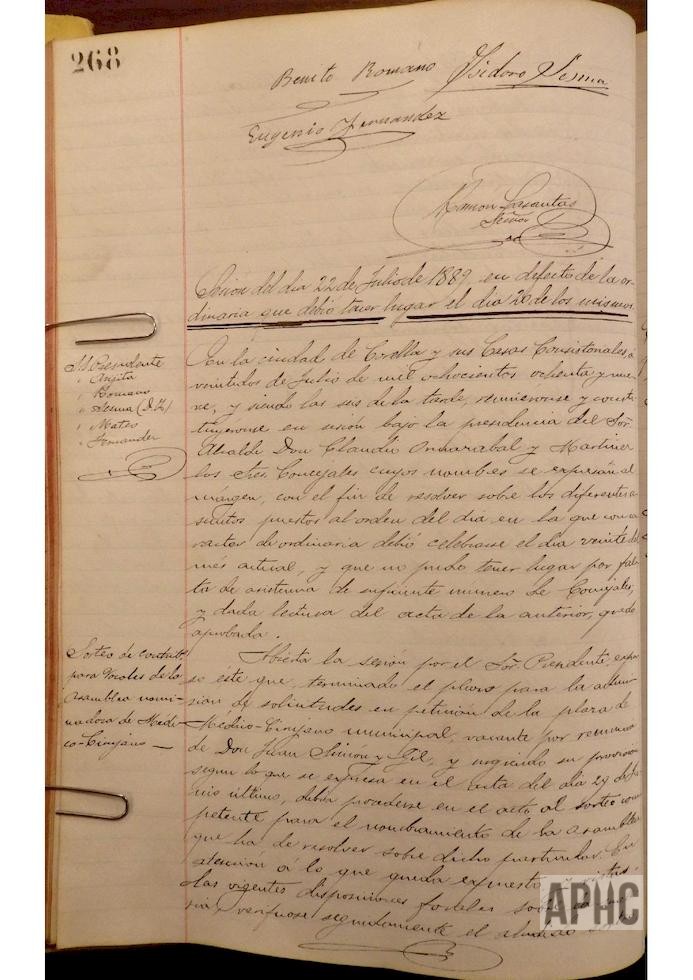 268
Benito Romano Isidoro Sesma
Eugenio Fernandez
Ramon Lasantas
Señor
Sesion del dia 22 de Julio de 1889 en defecto de la or-
dinaria que debió tener lugar el dia 20 de los mismos.
S.S. Presidente
" Angita
" Romano
" Sesma (D. I.)
" Mateo
" Fernander
En la ciudad de Corella y sus Casas Consistoriales, á
veintidos de Julio de mil ochocientos ochenta y nue-
ve, y siendo las seis de la tarde, reunieronse y consti-
tuyeronse en sesión bajo la presidencia del Sor.
Alcalde Don Claudio Ormazabal y Martinez
los Sres. Concejales cuyos nombres se expresan al
margen, con el fin de resolver sobre los diferentes a-
suntos puestos al orden del dia en la que con ca-
racter de ordinaria debió celebrarse el dia veinte del
més actual, y que no pudo tener lugar por fal-
ta de asistencia de suficiente numero de Concejales,
y dada lectura del acta de la anterior, quedó
aprobada.
Sorteo de contrib.
para Vocales de la
Asamblea nomi-
nadora de Médi-
co-Cirujano —
Abierta la sesión por el Sor. Presidente, expu-
so éste que, terminado el plazo para la admi-
sion de solicitudes en petición de la plaza de
Médico-Cirujano municipal, vacante por renuncia
de Don Juan Simon y Gil, y urgiendo su provision
segun lo que se expresa en el acta del dia 29 de Ju-
nio último, debia procederse en el acto al sorteo com-
petente para el nombramiento de la asamblea
que ha de resolver sobre dicho particular. En
atencion á lo que queda expuesto y vistas
las vigentes disposiciones forales sobre
ria, verificose seguidamente el
APHC